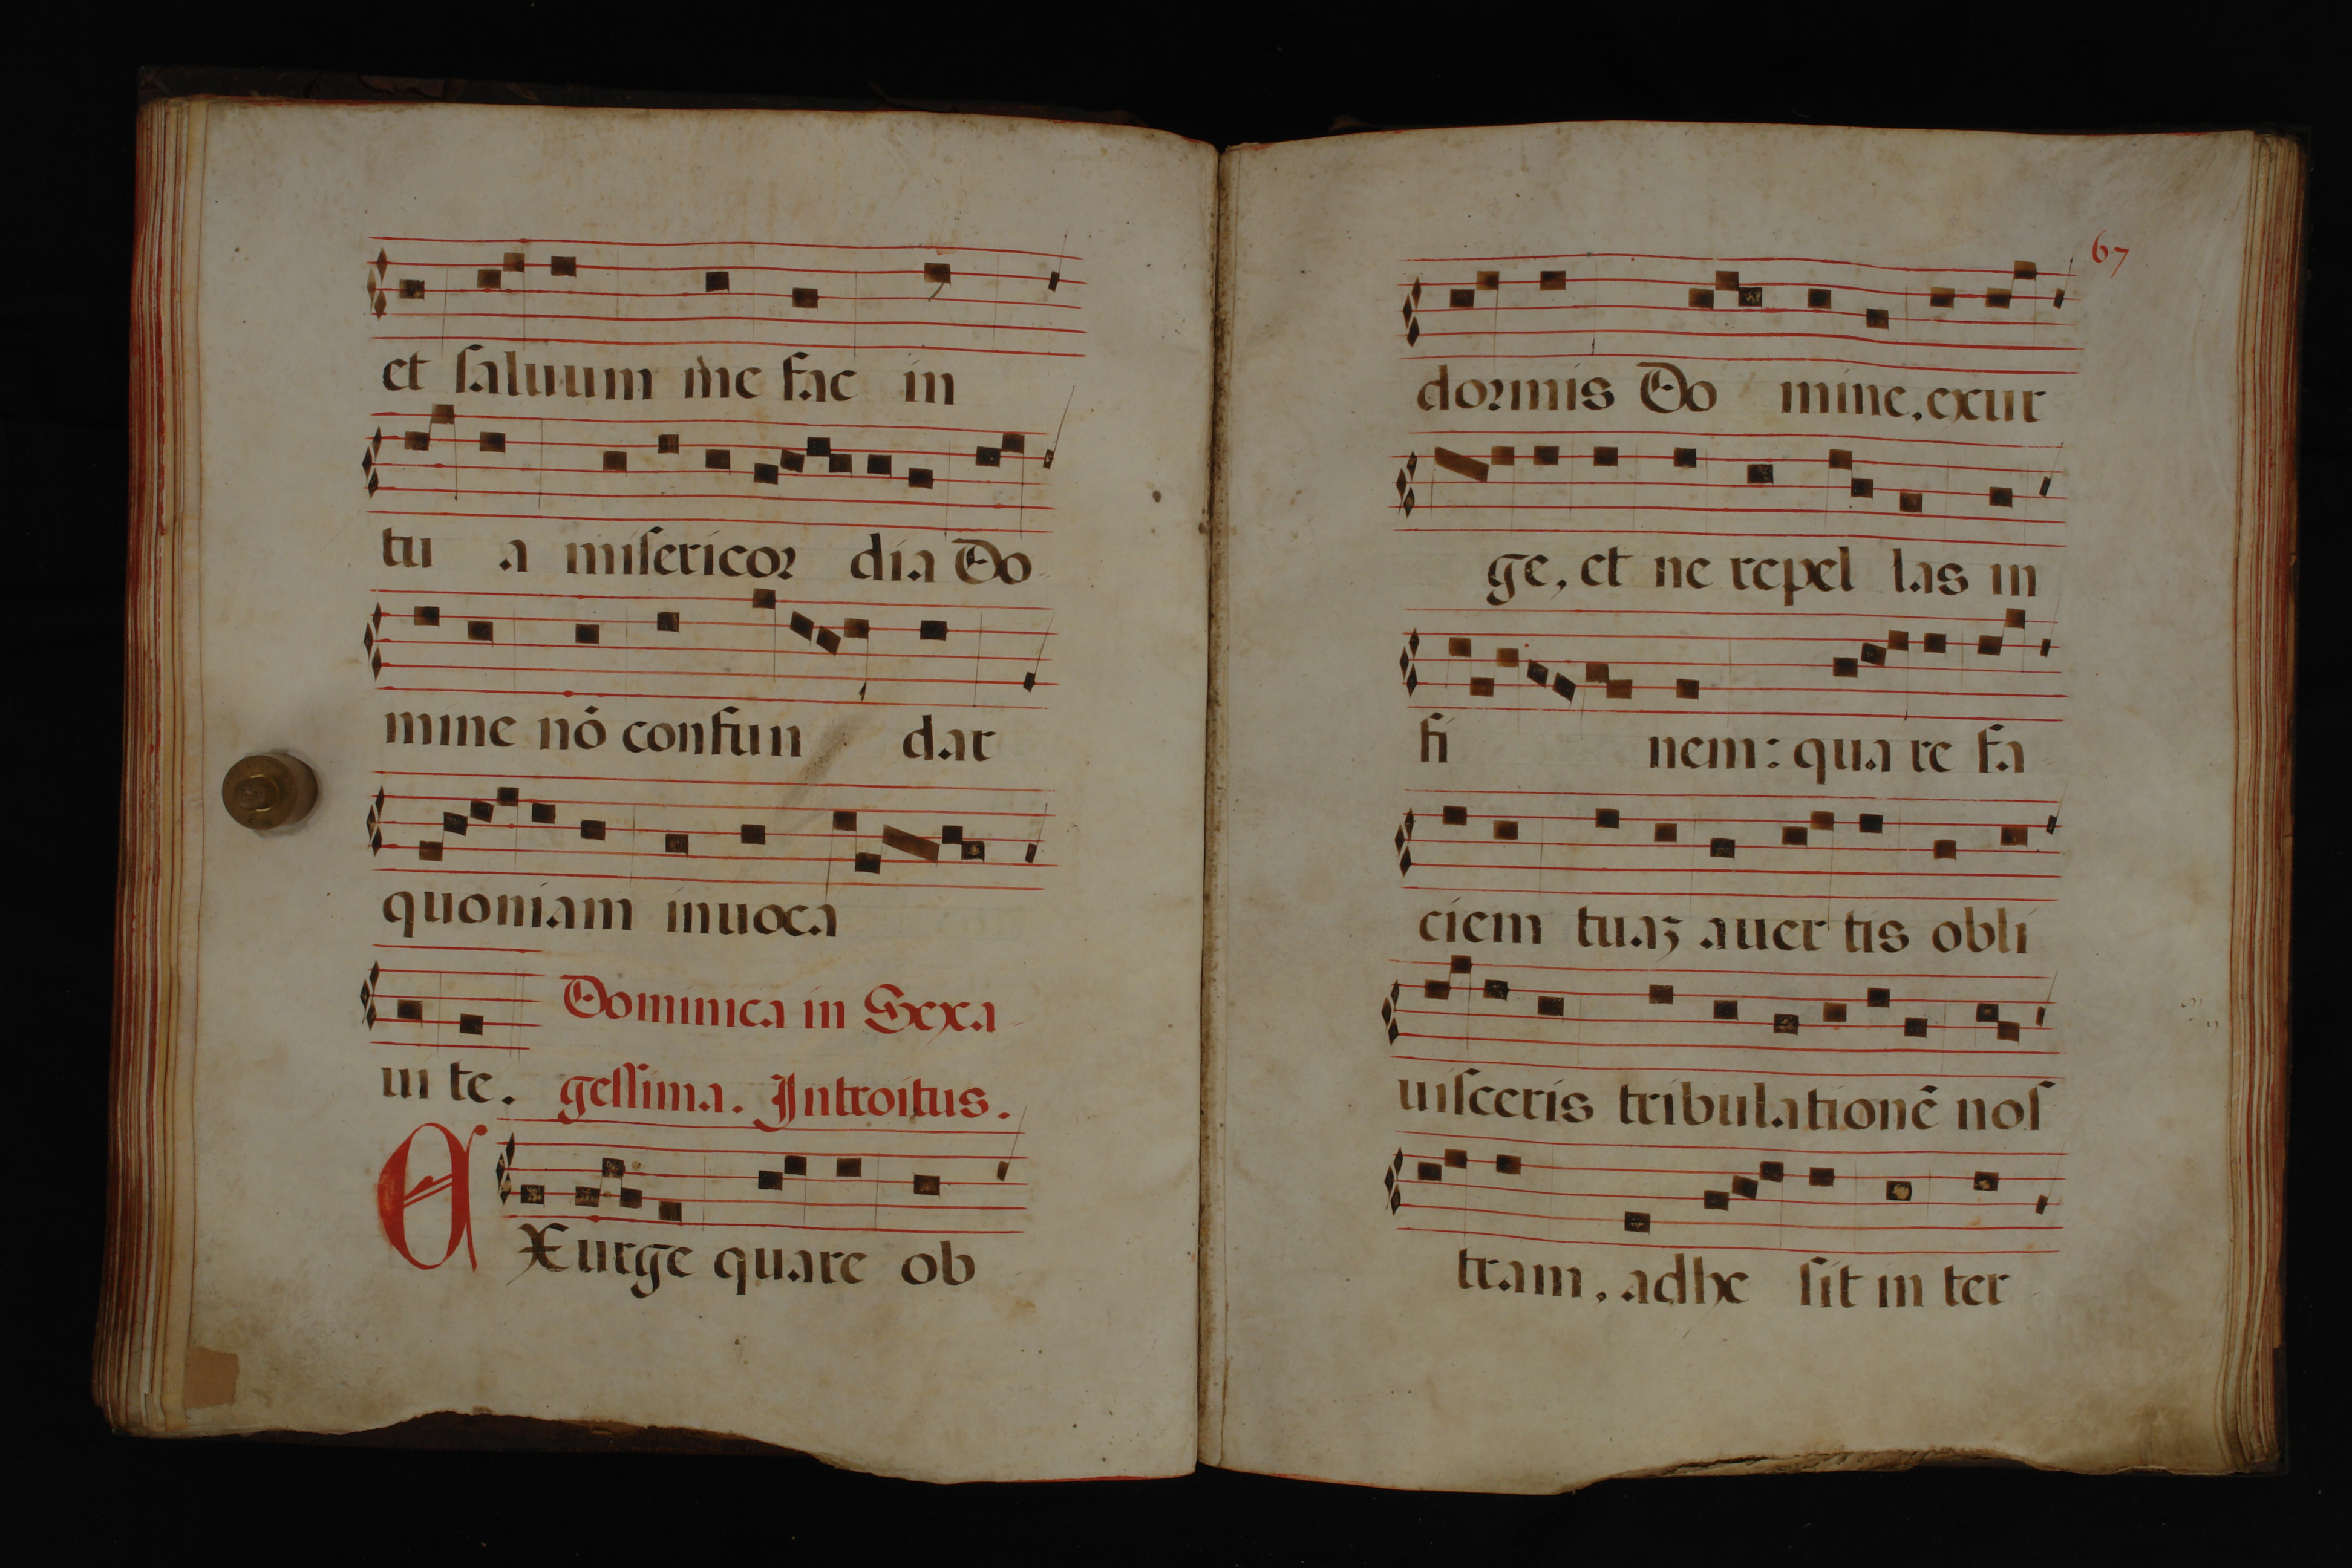 et saluum me fac in
tu a misericor dia Do
mine nō confun dar
quoniam inuoca
Dominica in Sexa
ui te. gessima. Introitus.
EXurge quare ob
67
dormis Do mine, exur
ge, et ne repel las in
fi nem: qua re fa
ciem tuaꝫ auer tis obli
uisceris tribulationē nos
tram, adhe sit in ter